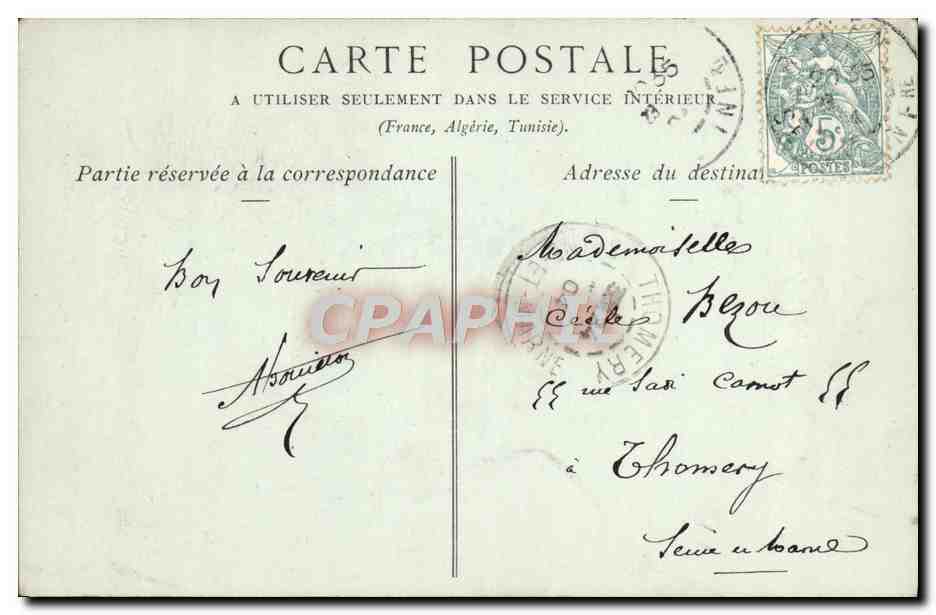 CARTE POSTALE
A UTILISER SEULEMENT DANS LE SERVICE INTÉRIEUR
(France, Algérie, Tunisie).
Partie réservée à la correspondance
Bon Souvenir
Adresse du destina
5c
POSTES
Mademoiselle
Cécile Bezou
rue Sadi Carnot
à
Thomery
Seine et Marne
THOMERY
ET MARNE
CPAPHIL